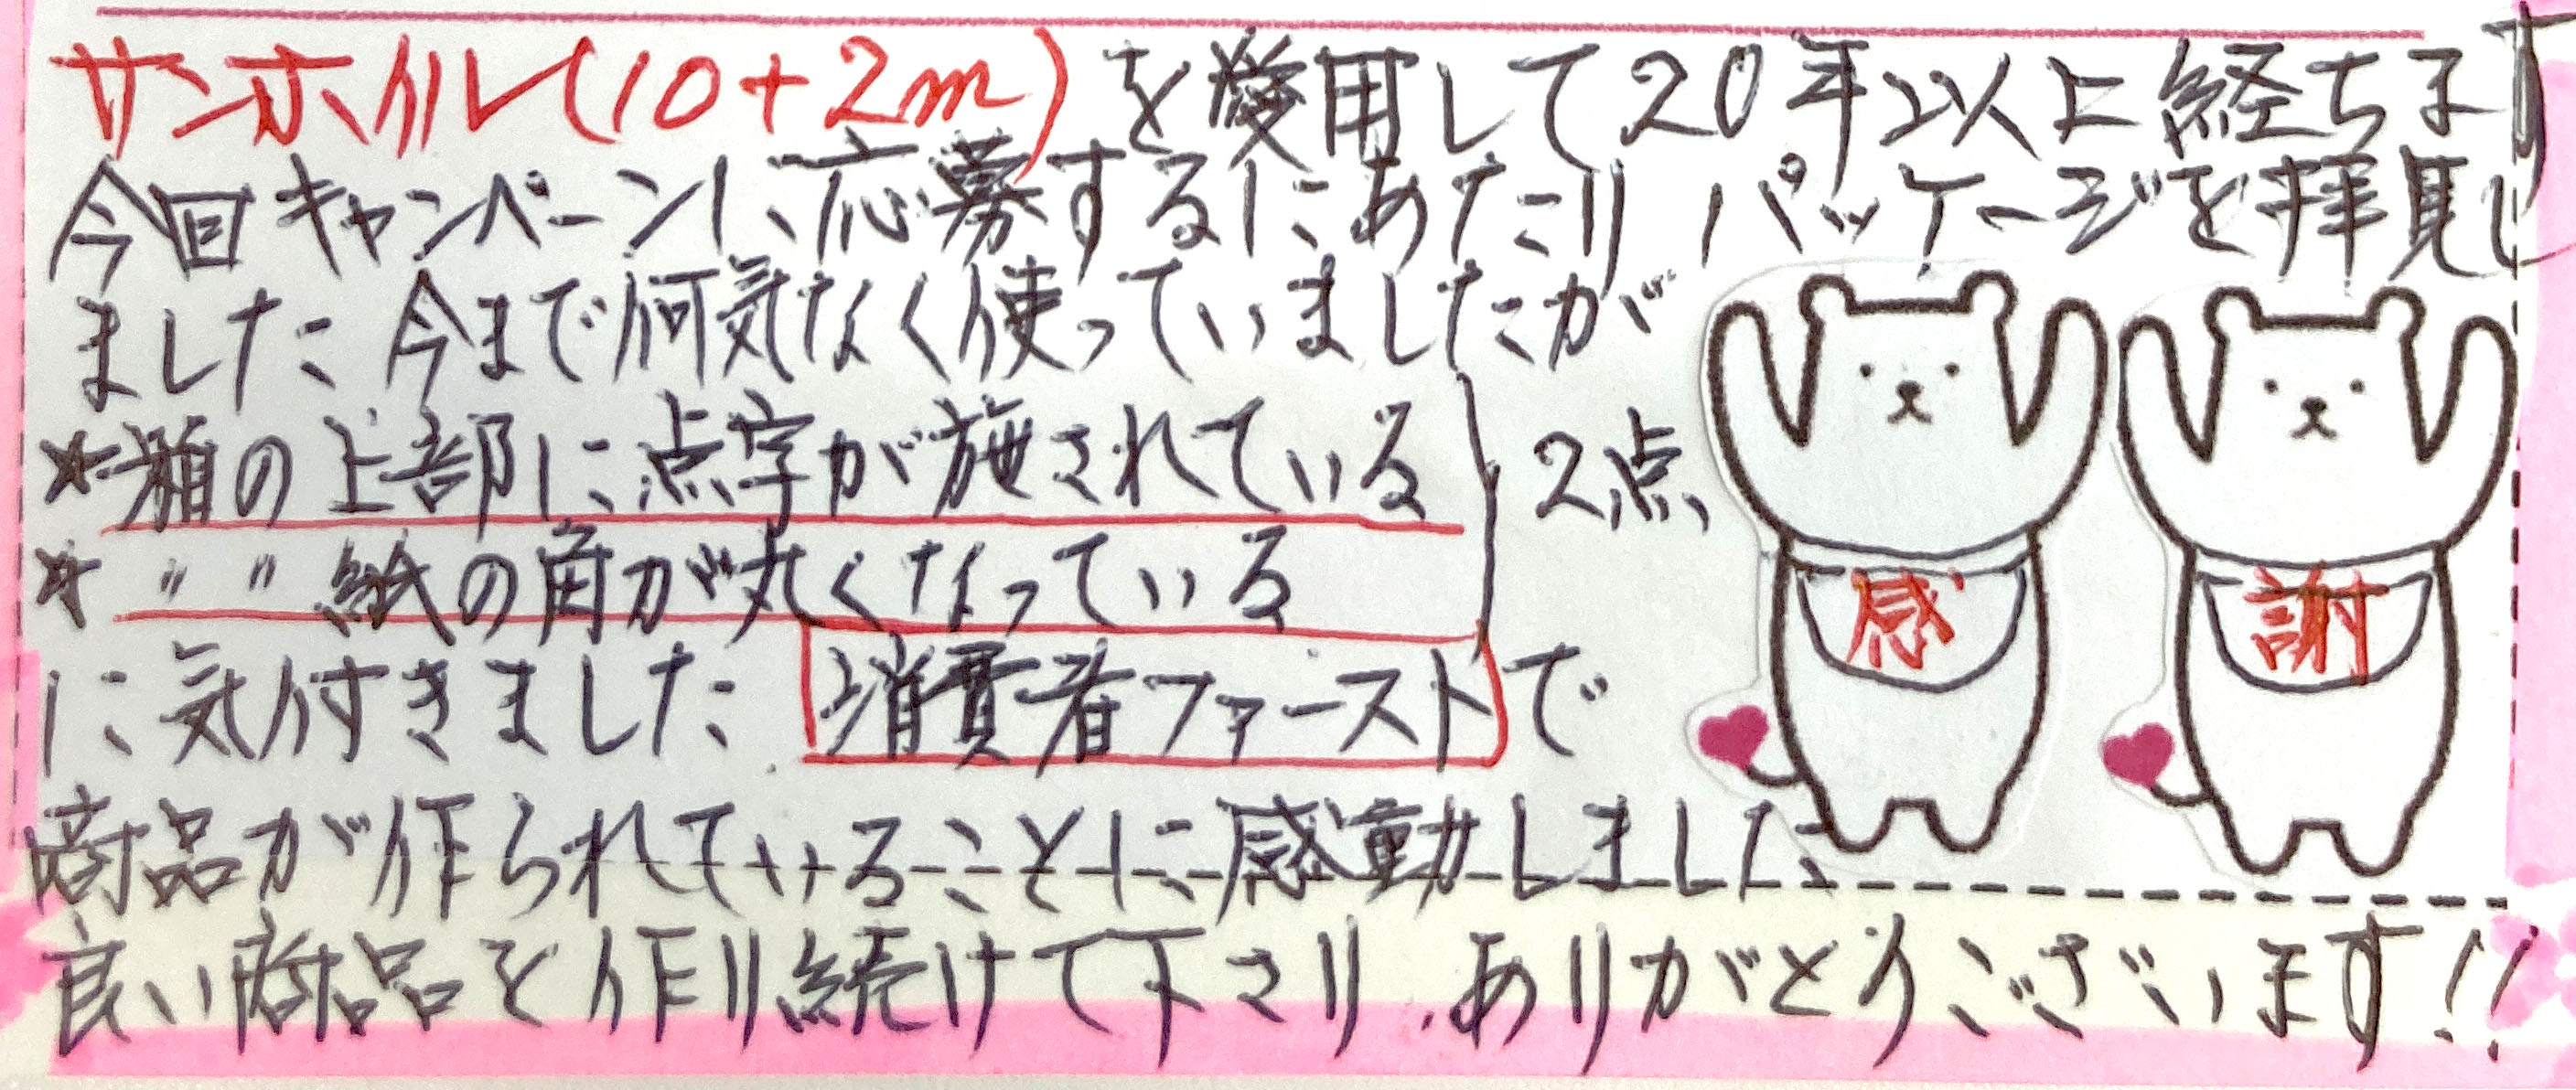 サンホイル(10+2m)を愛用して20年以上経ちます
今回キャンペーンに応募するにあたりパッケージを拝見し
ました 今まで何気なく使っていましたが
☆箱の上部に点字が施されている
☆ 〃 〃 紙の角が丸くなっている
2点
に気付きました 消費者ファーストで
商品が作られていることに感動しました
良い商品を作り続けて下さり、ありがとうございます!!
感
謝